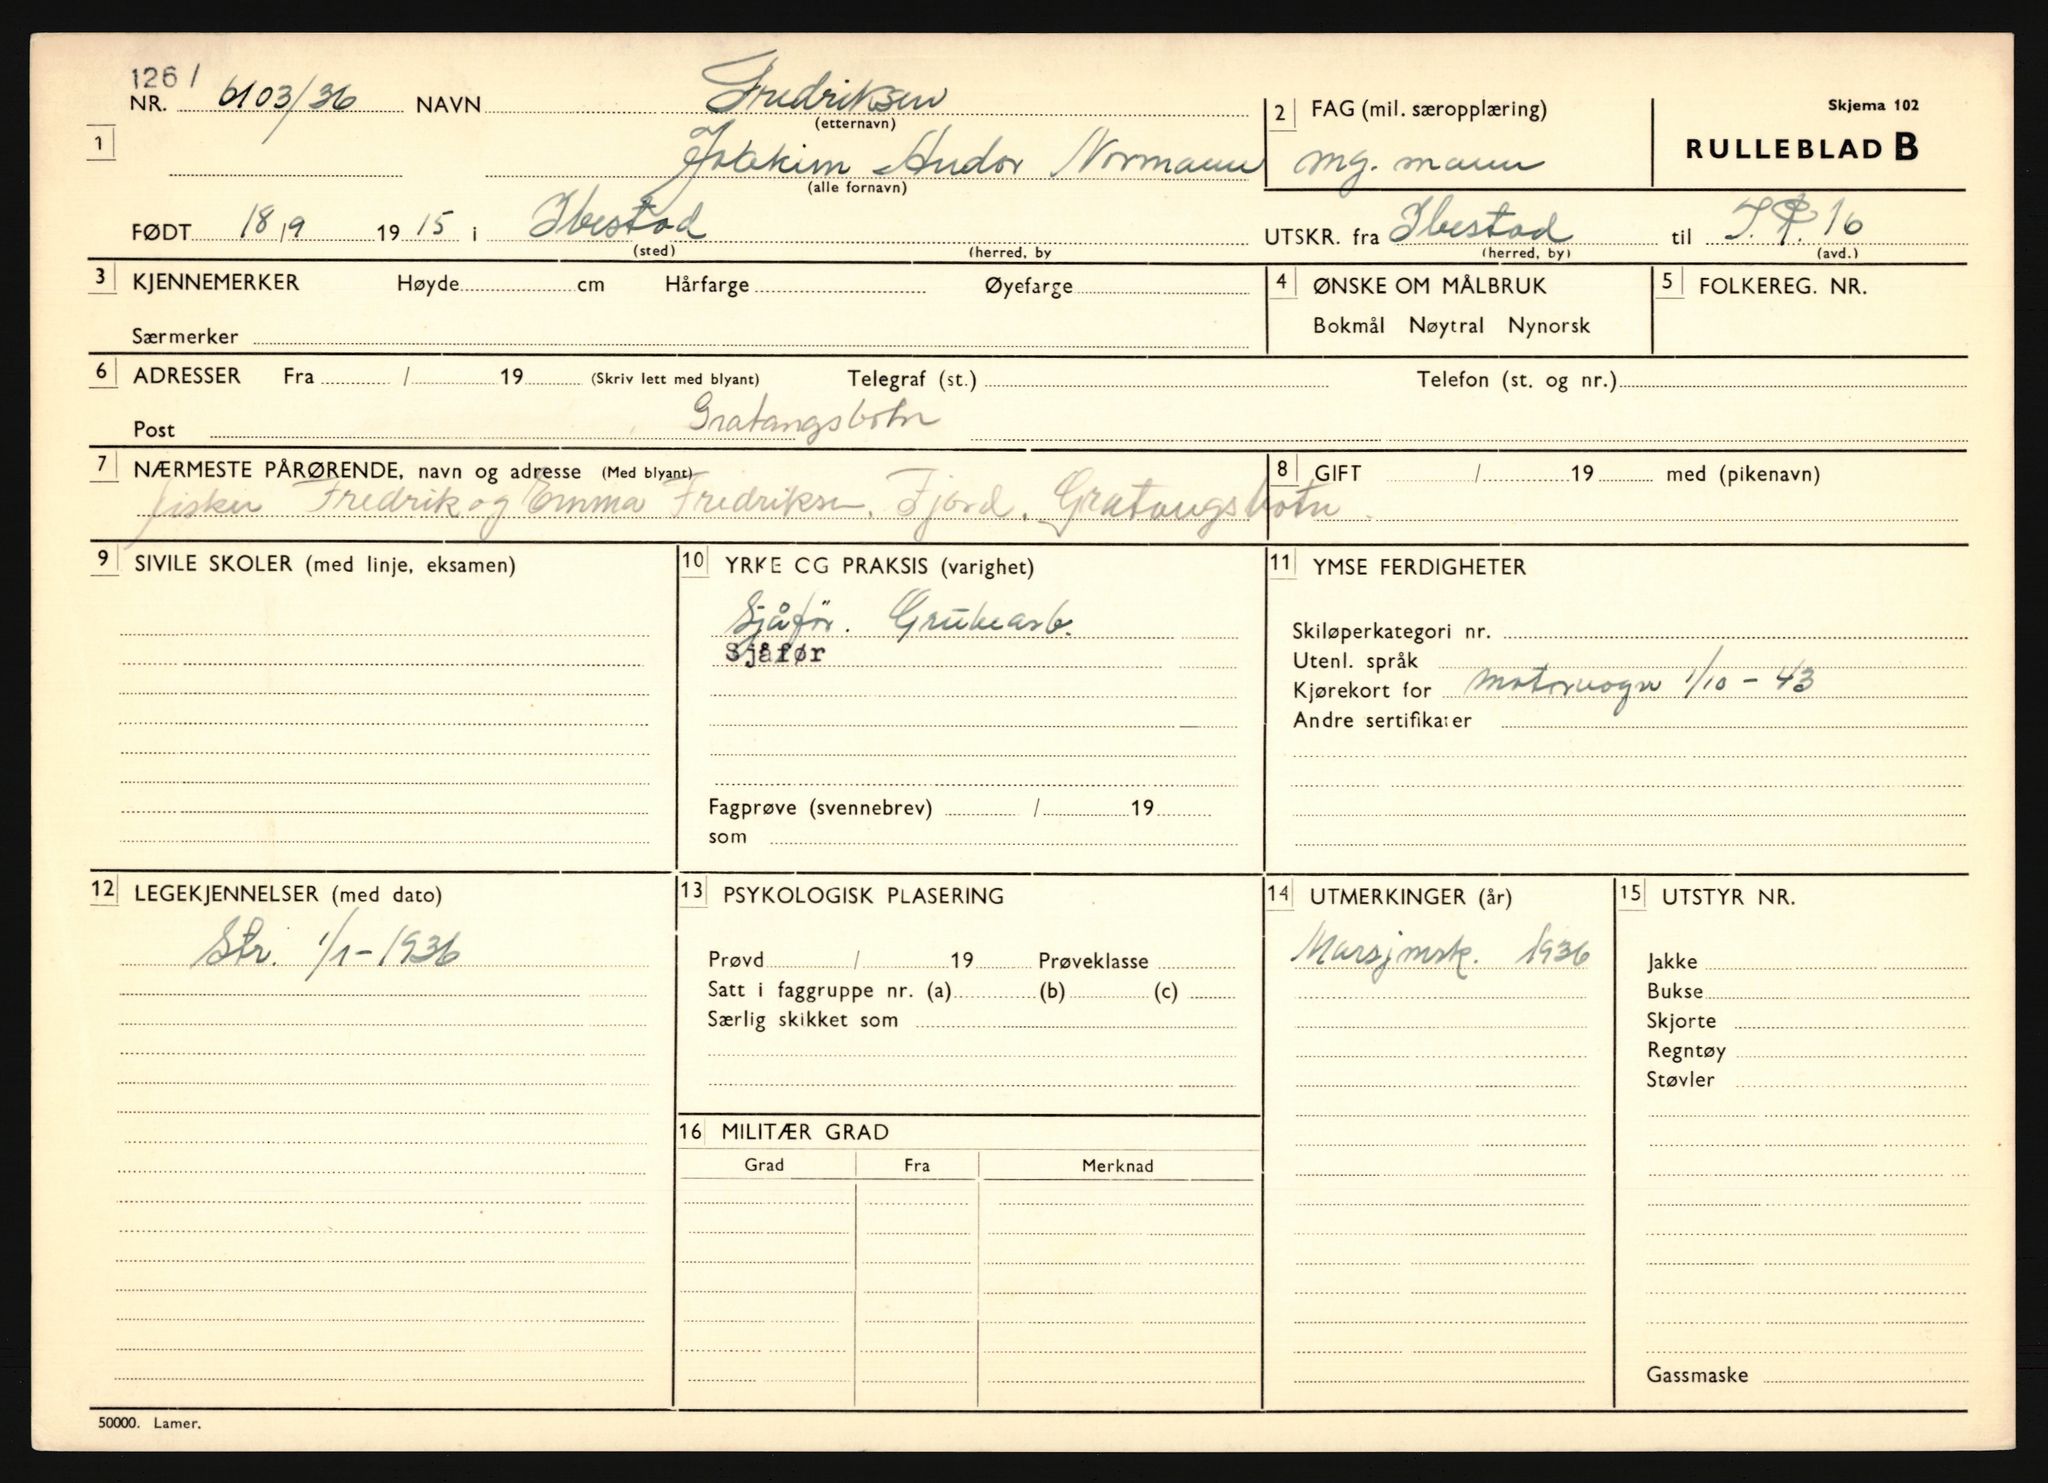 126 /
NR. 6103/36 NAVN Fredriksen
(etternavn)
2 FAG (mil. særopplæring)
Skjema 102
1
RULLEBLAD B
Joakim Andor Normann
(alle fornavn)
mg. mann
FØDT 18/9 1915 i Ibestad
(sted) (herred, by
UTSKR. fra Ibestad til I.R. 16
(herred, by) (avd.)
3 KJENNEMERKER Høyde cm Hårfarge Øyefarge
Særmerker
4 ØNSKE OM MÅLBRUK
Bokmål Nøytral Nynorsk
5 FOLKEREG. NR.
6 ADRESSER Fra / 19 (Skriv lett med blyant) Telegraf (st.) Telefon (st. og nr.)
Post Gratangsbotn
7 NÆRMESTE PÅRØRENDE, navn og adresse (Med blyant)
fisker Fredrik og Emma Fredriksen, Fjord, Gratangsbotn.
8 GIFT / 19 med (pikenavn)
9 SIVILE SKOLER (med linje, eksamen)
10 YRKE CG PRAKSIS (varighet)
Sjåför. Grubearb.
Sjåfør
Fagprøve (svennebrev) / 19
som
11 YMSE FERDIGHETER
Skiløperkategori nr.
Utenl. språk
Kjørekort for motorvogn 1/10 - 43
Andre sertifikater
12 LEGEKJENNELSER (med dato)
Str. 1/1 - 1936
13 PSYKOLOGISK PLASERING
Prøvd / 19 Prøveklasse
Satt i faggruppe nr. (a) (b) (c)
Særlig skikket som
14 UTMERKINGER (år)
Marsjmrk. 1936
15 UTSTYR NR.
Jakke
Bukse
Skjorte
Regntøy
Støvler
Gassmaske
16 MILITÆR GRAD
Grad Fra Merknad
50000. Lamer.